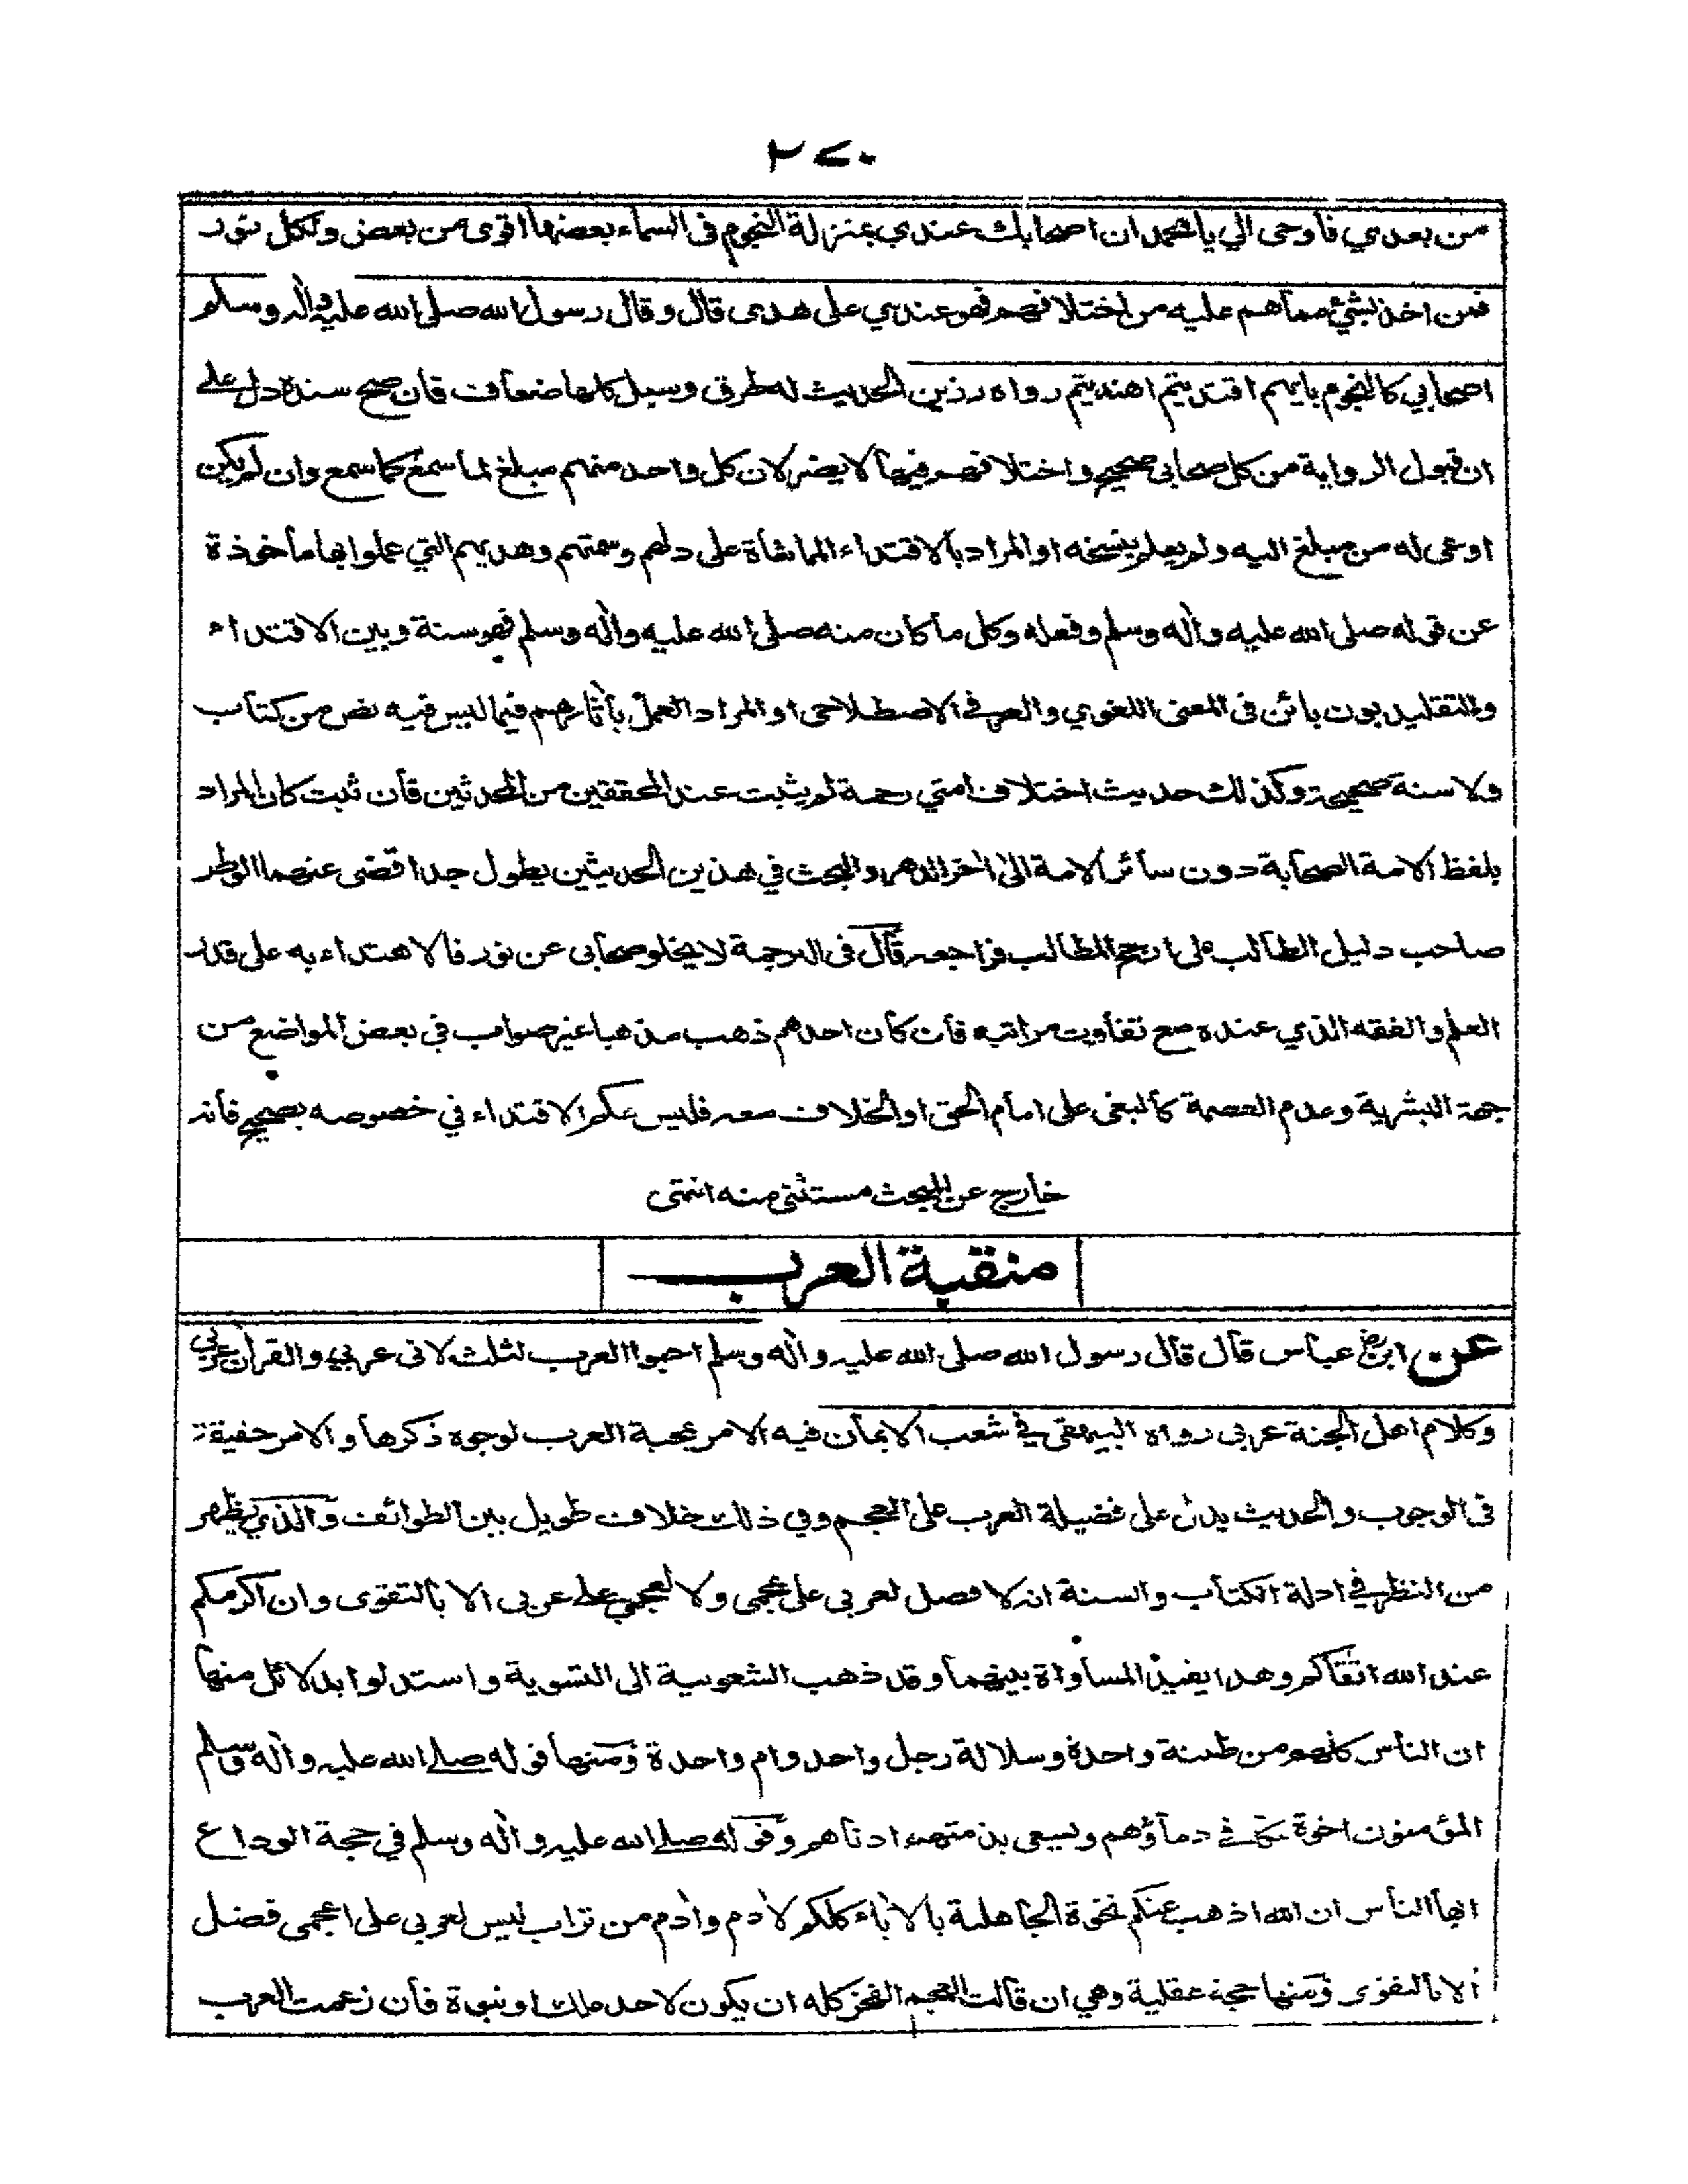 ٢٧٠
من بعدي فأوحى الي يا محمد ان اصحابك عندي بمنزلة النجوم فى السماء بعضها اقوى من بعض ولكل نور
فمن اخذ بشئ مما هم عليه من اختلافهم فهو عندي على هدى قال وقال رسول الله صلى الله عليه واله وسلم
اصحابي كالنجوم بايهم اقتديتم اهتديتم رواه رزين الحديث له طرق وسبل كلها ضعاف فان صح سنده دل على
ان قبول الرواية من كل صحابى صحيح واختلافهم فيها لا يضر لان كل واحد منهم مبلغ لما سمع كما سمع وان لم يكن
اوعى له من مبلغ اليه ولم يعلم بنسخه او المراد بالاقتداء المماشاة على دلهم وسمتهم وهديهم التي عملوا بها مأخوذة
عن قوله صلى الله عليه واٰله وسلم وفعله وكل ما كان منه صلى الله عليه واٰله وسلم فهو سنة وبين الاقتداء
والتقليد بون بائن فى المعنى اللغوي والعرفي الاصطلاحى او المراد العمل بأثارهم فيما ليس فيه نص من كتاب
ولا سنة صحيحة وكذلك حديث اختلاف امتي رحمة لم يثبت عند المحققين من المحدثين فأن ثبت كان المراد
بلفظ الامة الصحابة دون سائر الامة الى اٰخر الدهر والبحث في هذين الحديثين يطول جدا قضى عنهما الوطر
صاحب دليل الطالب على ارجح المطالب فراجعه قال فى الترجمة لا يخلو صحابى عن نور فالاهتداء به على قدر
العلم والفقه الذي عنده مع تفاوت مراتبه فأن كان احدهم ذهب مذهبا غير صواب في بعض المواضع من
جهة البشرية وعدم العصمة كالبغى على امام الحق او الخلاف معه فليس حكم الاقتداء في خصوصه بصحيح فأنه
خارج عن المبحث مستثنى منه انتهى
منقبة العرب
عن ابن عباس رض قال قال رسول الله صلى الله عليه واٰله وسلم احبوا العرب لثلث لانى عربي والقراٰن عربي
وكلام اهل الجنة عربى رواه البيهقى في شعب الايمان فيه الامر بمحبة العرب لوجوه ذكرها والامر حقيقة
فى الوجوب والحديث يدل على فضيلة العرب على العجم وفي ذلك خلاف طويل بين الطوائف والذي يظهر
من النظر في ادلة الكتاب والسنة انه لا فضل لعربى على عجمى ولا لعجمي على عربى الا بالتقوى وان اكرمكم
عند الله اتقاكم وهذا يفيد المساواة بينهما وقد ذهب الشعوبية الى التسوية واستدلوا بدلائل منها
ان الناس كلهم من طينة واحدة وسلالة رجل واحد وام واحدة ومنها قوله صلى الله عليه واٰله وسلم
المؤمنون اخوة تتكافئ دماؤهم ويسعى بذمتهم ادناهم وقوله صلى الله عليه واٰله وسلم في حجة الوداع
ايها الناس ان الله اذهب عنكم نخوة الجاهلية بالاٰباء كلكم لاٰدم واٰدم من تراب ليس لعربي على اعجمى فضل
الا بالتقوى ومنها حجة عقلية وهي ان قالت العجم الفخر كله ان يكون لاحد ملك او نبوة فأن زعمت العرب